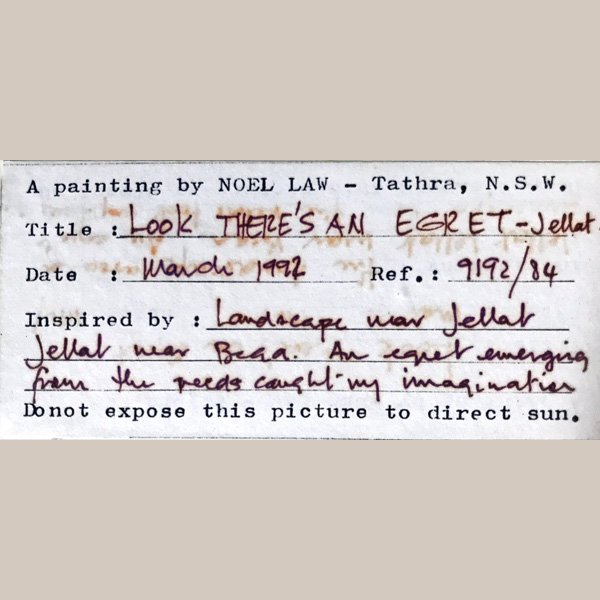 A painting by NOEL LAW - Tathra, N.S.W.
Title : LOOK THERE'S AN EGRET - Jellat
Date : March 1992 Ref.: 9192/84
Inspired by : Landscape near Jellat
Jellat near Bega. An egret emerging
from the reeds caught my imagination
Do not expose this picture to direct sun.